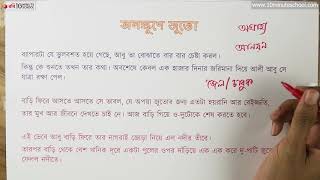 www.10minuteschool.com
জলস্থলে জুতো
ব্যাপারটা যে ভুলবশত হয়ে গেছে, আবু তা বোঝাতে বার বার চেষ্টা করল।
কিন্তু কে শুনতে তখন তার কথা। অবশেষে কেবল এক হাজার দিনার জরিমানা দিয়ে আলী আবু সে
যাত্রা রক্ষা পেল।
বাড়ি ফিরে আসতে আসতে সে ভাবল, যে অপয়া জুতোর জন্য এতটা হয়রানি আর বেইজ্জতি,
তার মুখ আর জীবনে দেখতে চাই নে। আজ বাড়ি গিয়ে ও-দুটোকে শেষ করতে হবে।
এই ভেবে আবু বাড়ি ফিরে তার নাগরাই জোড়া নিয়ে এল নদীর তীরে।
তারপর বাড়ি থেকে বেশ খানিক দূরে একটা পুলের ওপর দাঁড়িয়ে এক এক করে দু-পাটি জুতোই
ফেলল নদীতে।